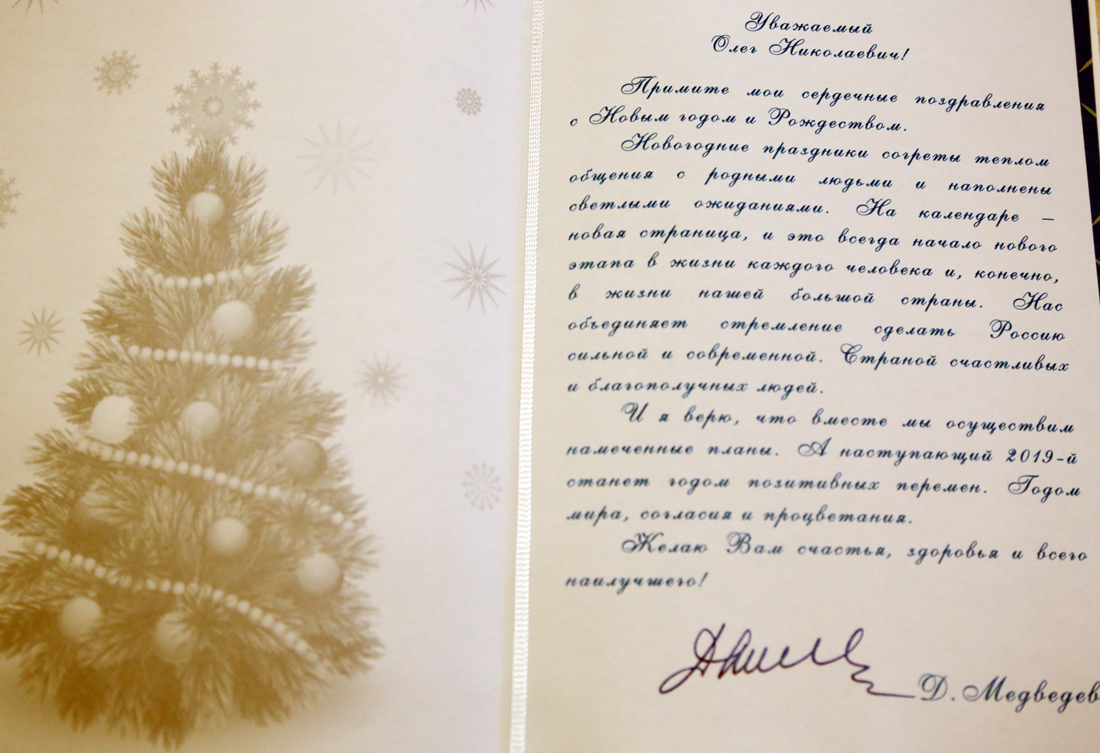 Уважаемый
Олег Николаевич!
Примите мои сердечные поздравления
с Новым годом и Рождеством.
Новогодние праздники согреты теплом
общения с родными людьми и наполнены
светлыми ожиданиями. На календаре –
новая страница, и это всегда начало нового
этапа в жизни каждого человека и, конечно,
в жизни нашей большой страны. Нас
объединяет стремление сделать Россию
сильной и современной. Страной счастливых
и благополучных людей.
И я верю, что вместе мы осуществим
намеченные планы. А наступающий 2019-й
станет годом позитивных перемен. Годом
мира, согласия и процветания.
Желаю Вам счастья, здоровья и всего
наилучшего!
Д. Медведев